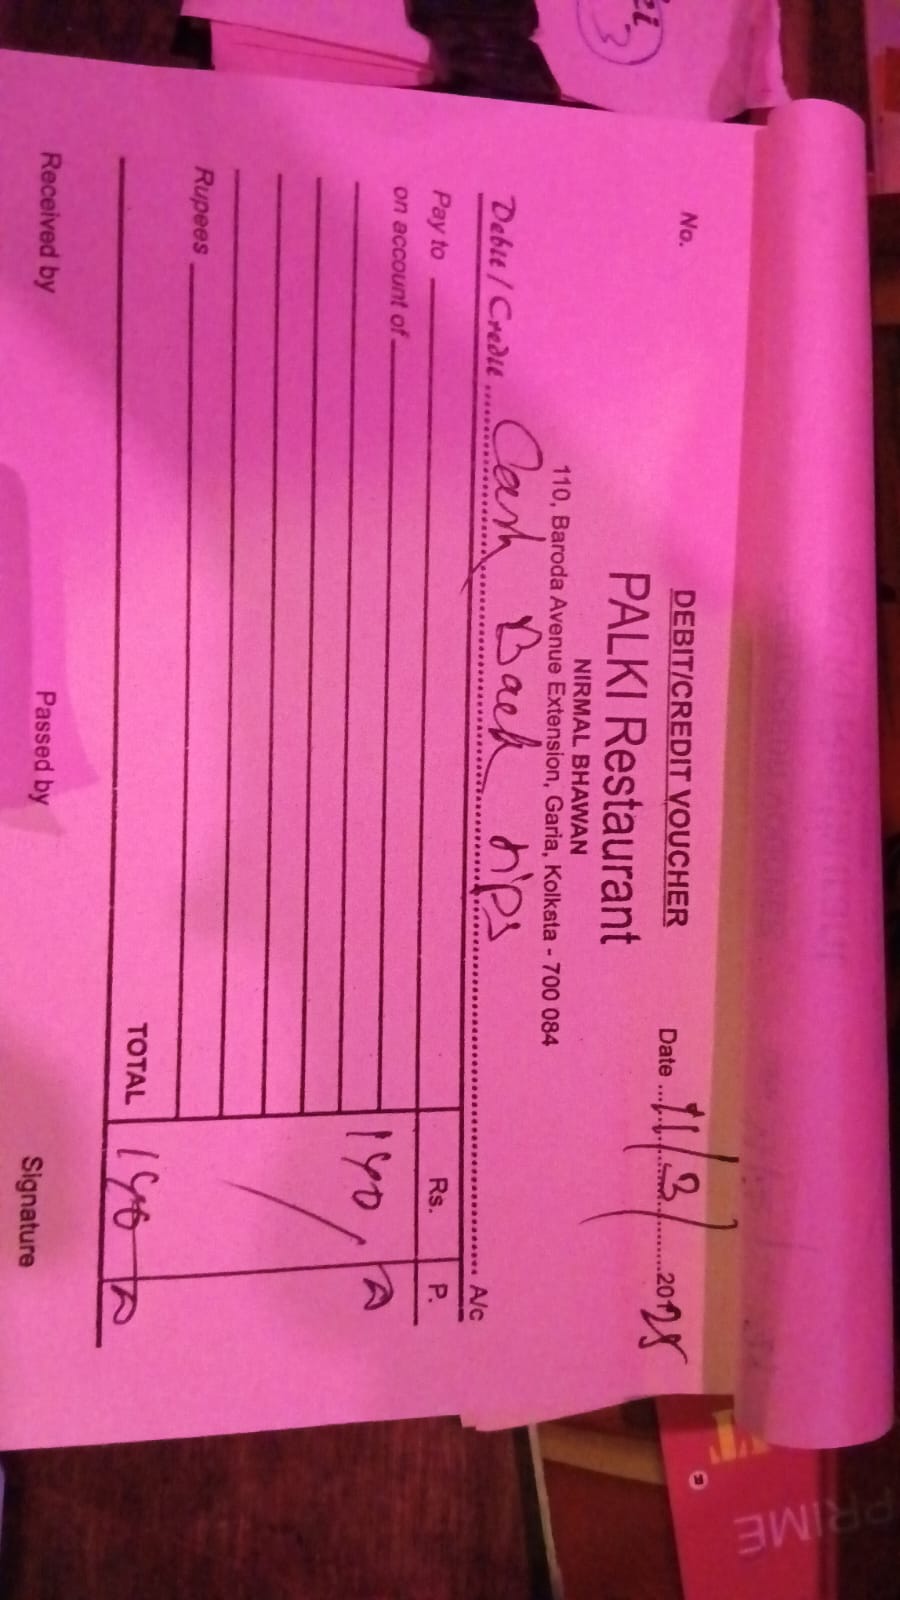 No.
DEBIT/CREDIT VOUCHER
Date 11/3/2025
PALKI Restaurant
NIRMAL BHAWAN
110, Baroda Avenue Extension, Garia, Kolkata - 700 084
Debit / Credit Cash Back A/c
Pay to
Rs. P.
on account of
Rupees
TOTAL
Received by
Passed by
Signature
PRIME